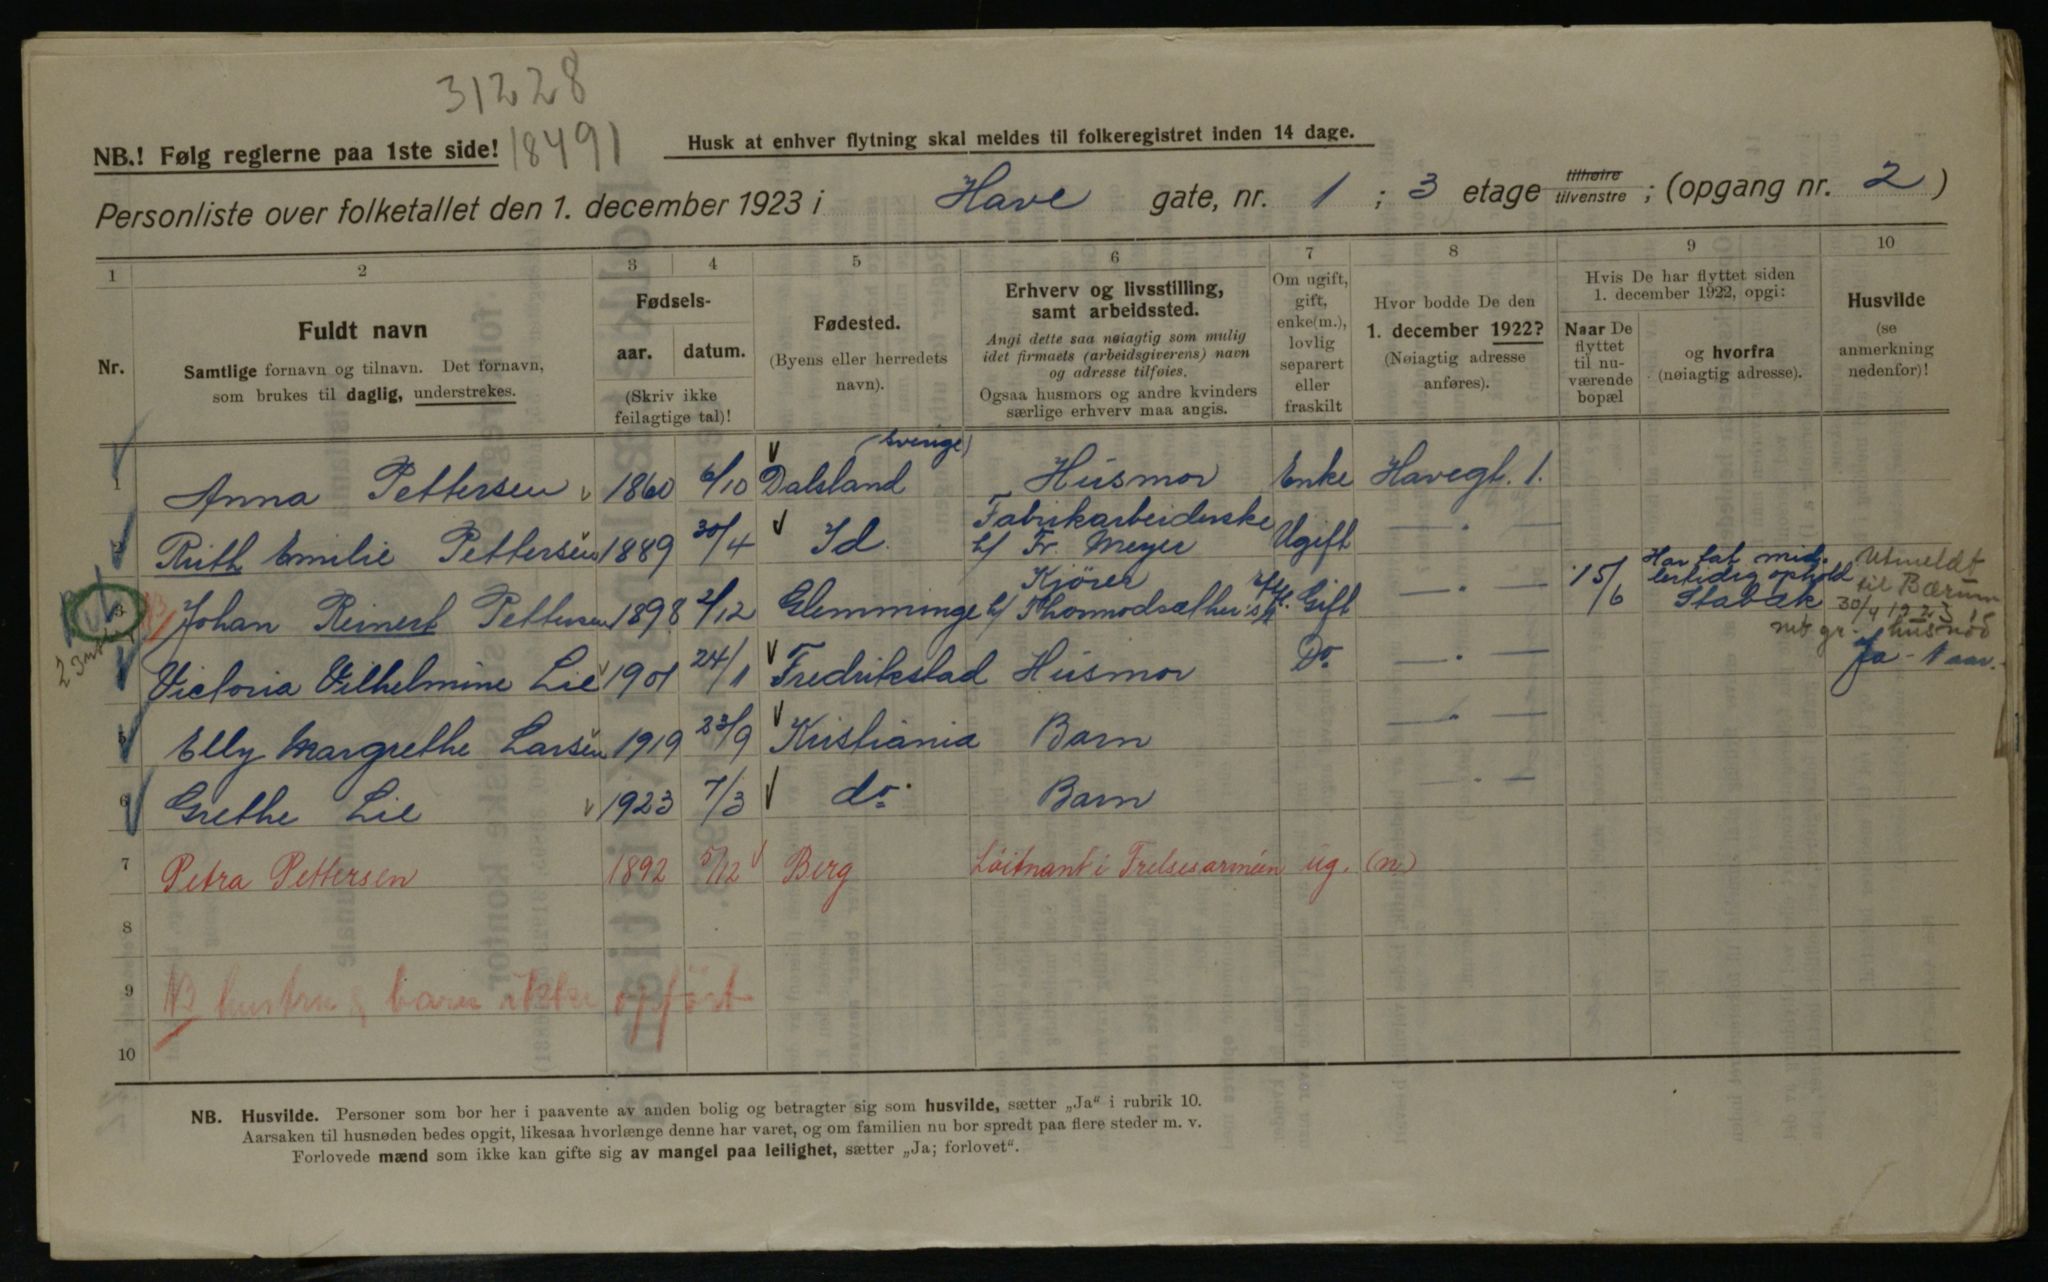 31228
NB.! Følg reglerne paa 1ste side! 18491 Husk at enhver flytning skal meldes til folkeregistret inden 14 dage.
Personliste over folketallet den 1. december 1923 i Have gate, nr. 1 ; 3 etage tilhøire tilvenstre ; (opgang nr. 2 )
1 2 3 4 5 6 7 8 9 10
Nr.
Fuldt navn
Samtlige fornavn og tilnavn. Det fornavn,
som brukes til daglig, understrekes.
Fødsels-
aar. datum.
(Skriv ikke
feilagtige tal)!
Fødested.
(Byens eller herredets
navn).
Erhverv og livsstilling,
samt arbeidssted.
Angi dette saa nøiagtig som mulig
idet firmaets (arbeidsgiverens) navn
og adresse tilføies.
Ogsaa husmors og andre kvinders
særlige erhverv maa angis.
Om ugift,
gift,
enke(m.),
lovlig
separert
eller
fraskilt
Hvor bodde De den
1. december 1922?
(Nøiagtig adresse
anføres).
Hvis De har flyttet siden
1. december 1922, opgi:
Naar De
flyttet
til nu-
værende
bopæl
og hvorfra
(nøiagtig adresse).
Husvilde
(se
anmerkning
nedenfor)!
(Sverige)
1 Anna Pettersen 1860 6/10 Dalsland Husmor Enke Havegt. 1.
2 Ruth Emilie Pettersen 1889 30/4 Id. Fabrikarbeiderske
h/ Fr. Meyer Ugift — " —
3 Johan Reinert Pettersen 1898 2/12 Glemminge Kjører
h/ Thormodsæther Gift — " — 15/6 Har tat mid-
lertidig ophold
Stabæk
Utmeldt
til Bærum
30/4 1923
husnød
4 Victoria Vilhelmine Lie 1901 24/1 Fredrikstad Husmor Do. — " — Ja - 1 aar.
5 Elly Margrethe Larsen 1919 23/9 Kristiania Barn — " —
6 Grethe Lie 1923 7/3 do. Barn — " —
7 Petra Pettersen 1892 5/12 Berg Løitnant i Frelsesarméen ug. (n)
8
9 NB hustru & barn ikke opført
10
NB. Husvilde. Personer som bor her i paavente av anden bolig og betragter sig som husvilde, sætter „Ja“ i rubrik 10.
Aarsaken til husnøden bedes opgit, likesaa hvorlænge denne har varet, og om familien nu bor spredt paa flere steder m. v.
Forlovede mænd som ikke kan gifte sig av mangel paa leilighet, sætter „Ja; forlovet“.